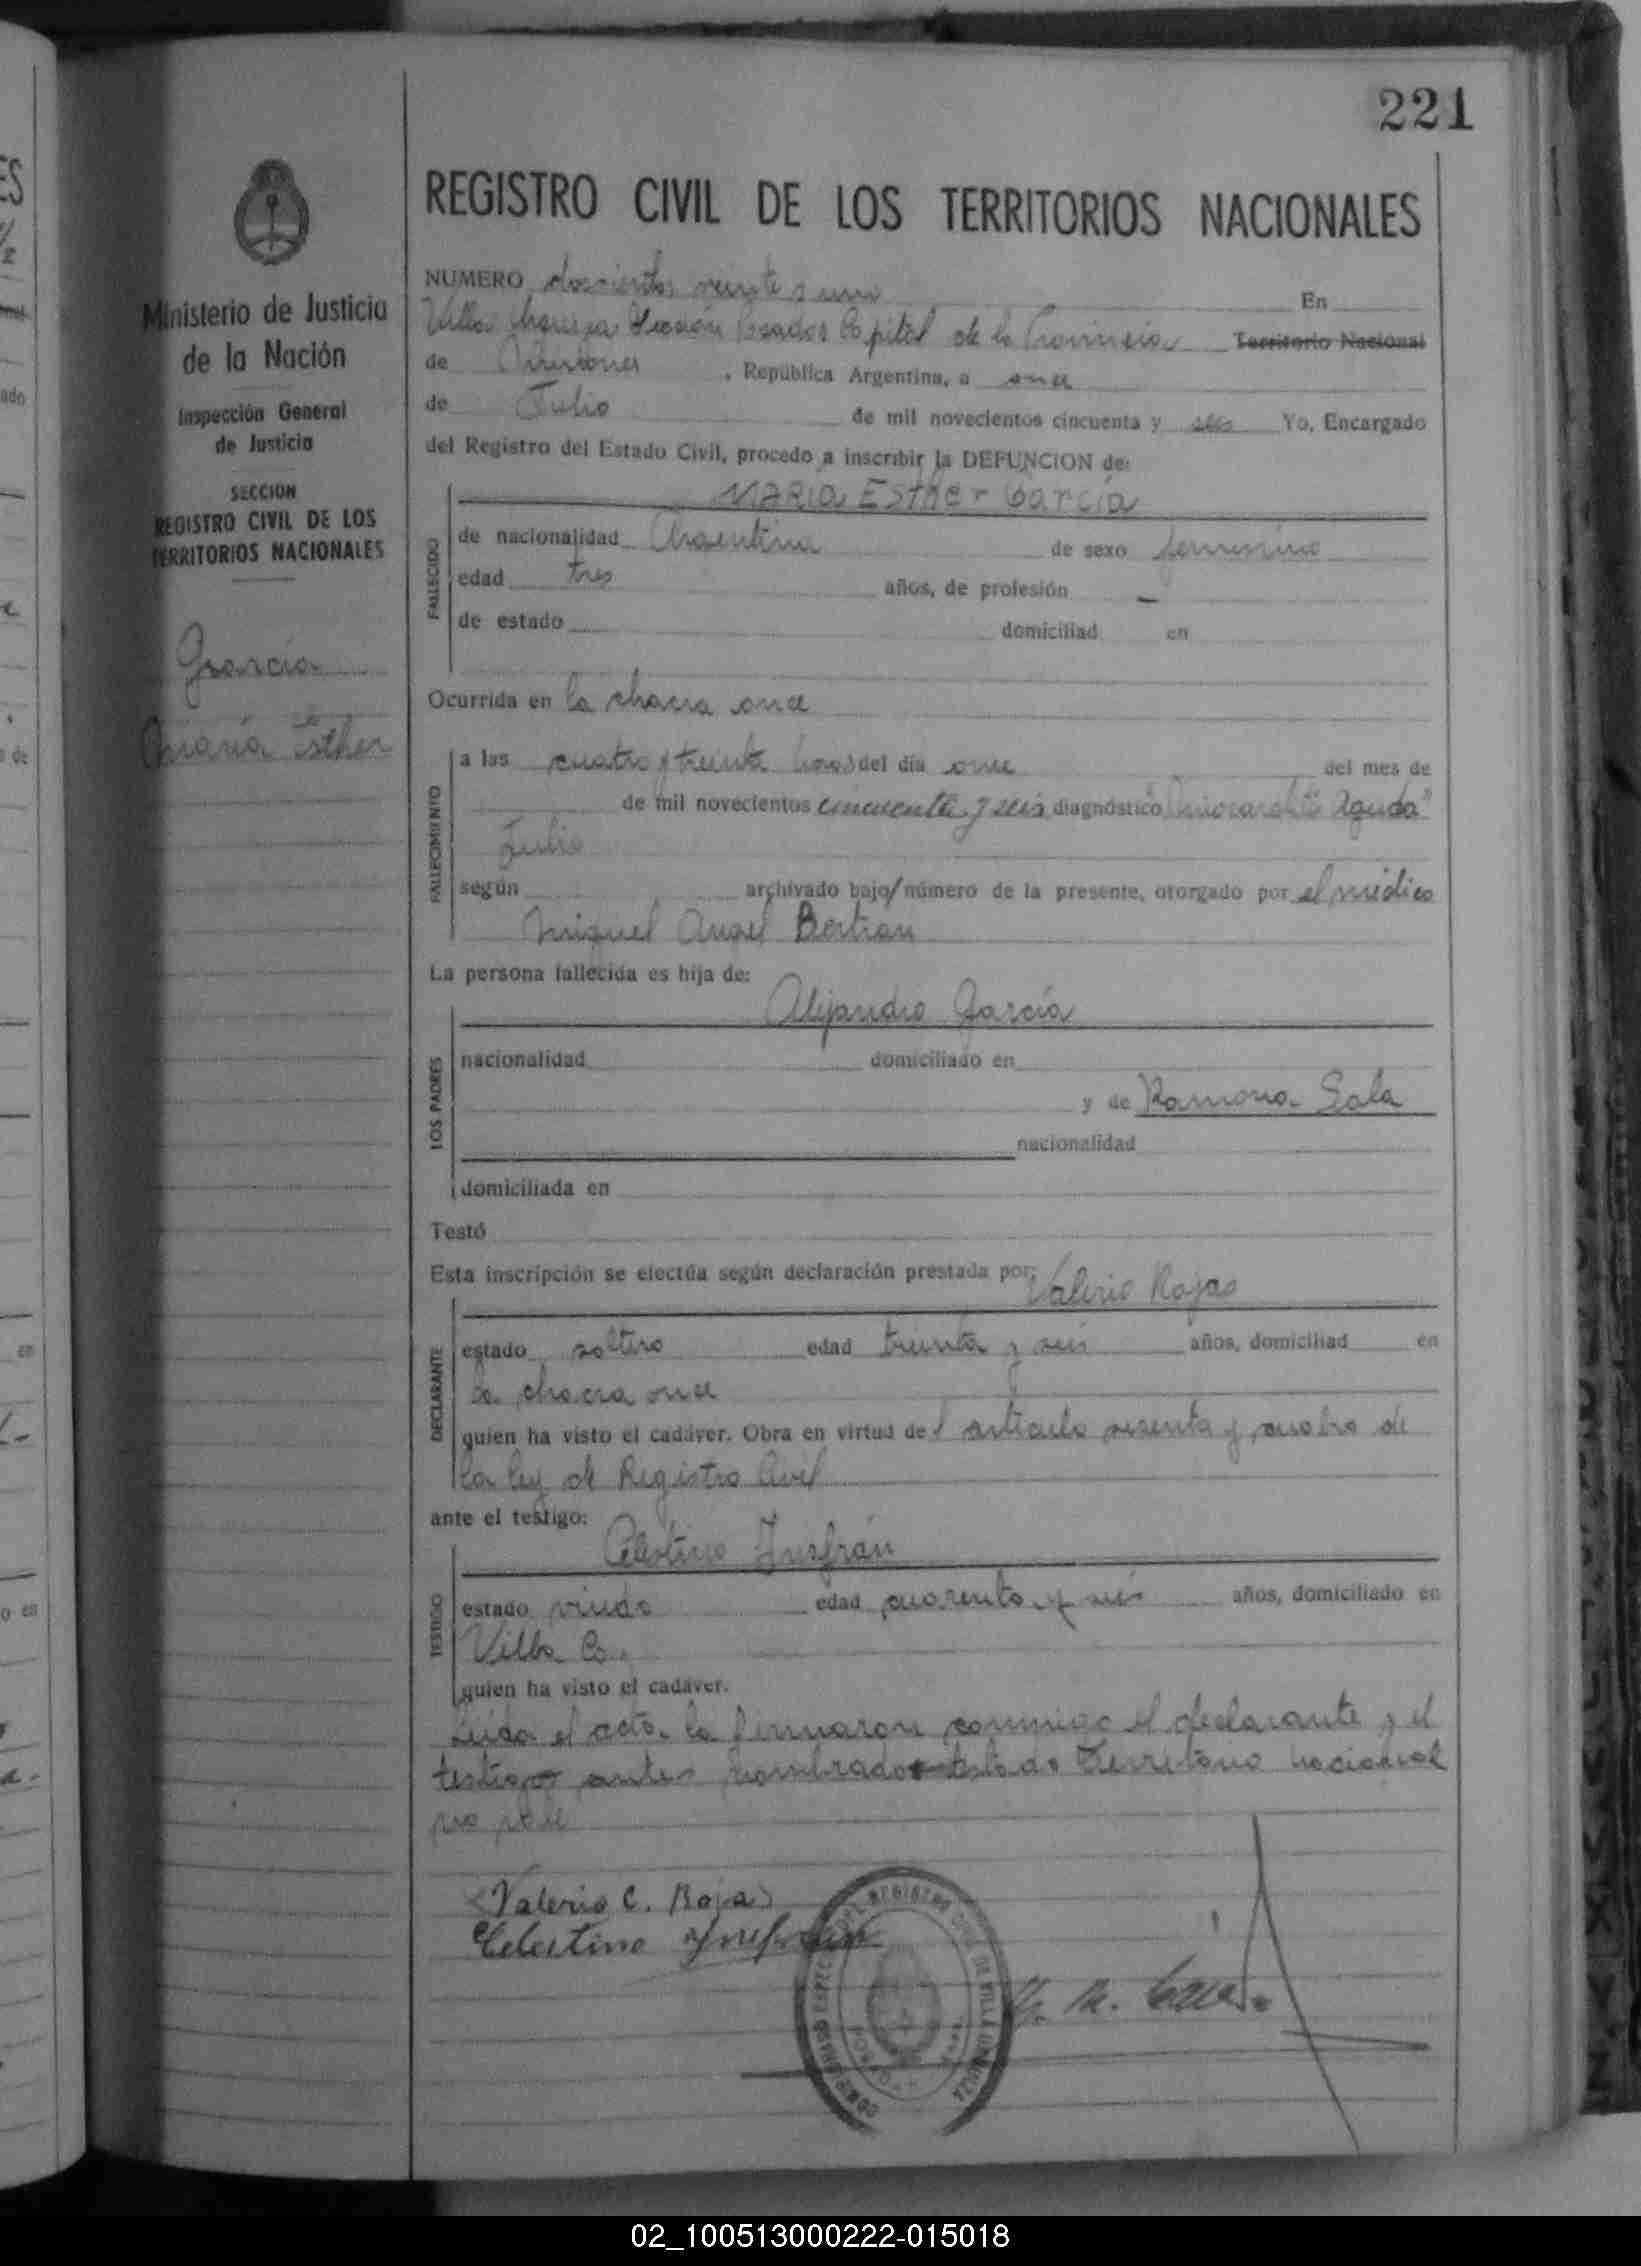 221
REGISTRO CIVIL DE LOS TERRITORIOS NACIONALES
Ministerio de Justicia
de la Nación
Inspección General
de Justicia
SECCION
REGISTRO CIVIL DE LOS
TERRITORIOS NACIONALES
García
María Esther
NUMERO doscientos veinte y uno En
Villa Urquiza Sección Posadas Capital de la Provincia Territorio Nacional
de Misiones, República Argentina, a once
de Julio de mil novecientos cincuenta y seis Yo, Encargado
del Registro del Estado Civil, procedo a inscribir la DEFUNCION de:
MARIA ESTHEr García
de nacionalidad Argentina de sexo femenino
FALLECIDO
edad tres años, de profesión —
de estado domiciliad en
Ocurrida en la chacra once
a las cuatro y treinta horas del día once del mes de
FALLECIMIENTO
de mil novecientos cincuenta y seis diagnóstico "Miocarditis Aguda"
Julio
según archivado bajo/número de la presente, otorgado por el médico
Miguel Angel Bertran
La persona fallecida es hija de:
Alejandro García
LOS PADRES
nacionalidad domiciliado en
y de Ramona Sala
nacionalidad
domiciliada en
Testó
Esta inscripción se efectúa según declaración prestada por:
Valerio Rojas
DECLARANTE
estado soltero edad treinta y seis años, domiciliad en
la chacra once
quien ha visto el cadáver. Obra en virtud del artículo sesenta y cuatro de
la ley de Registro Civil
ante el testigo:
Celestino Insfrán
TESTIGO
estado viudo edad cuarenta y seis años, domiciliado en
Villa
quien ha visto el cadáver.
Leida el acta, la firmaron conmigo el declarante y el
testigo antes nombrado testado Territorio nacional
no vale
Valerio C. Roja
Celestino Insfran
02_100513000222-015018